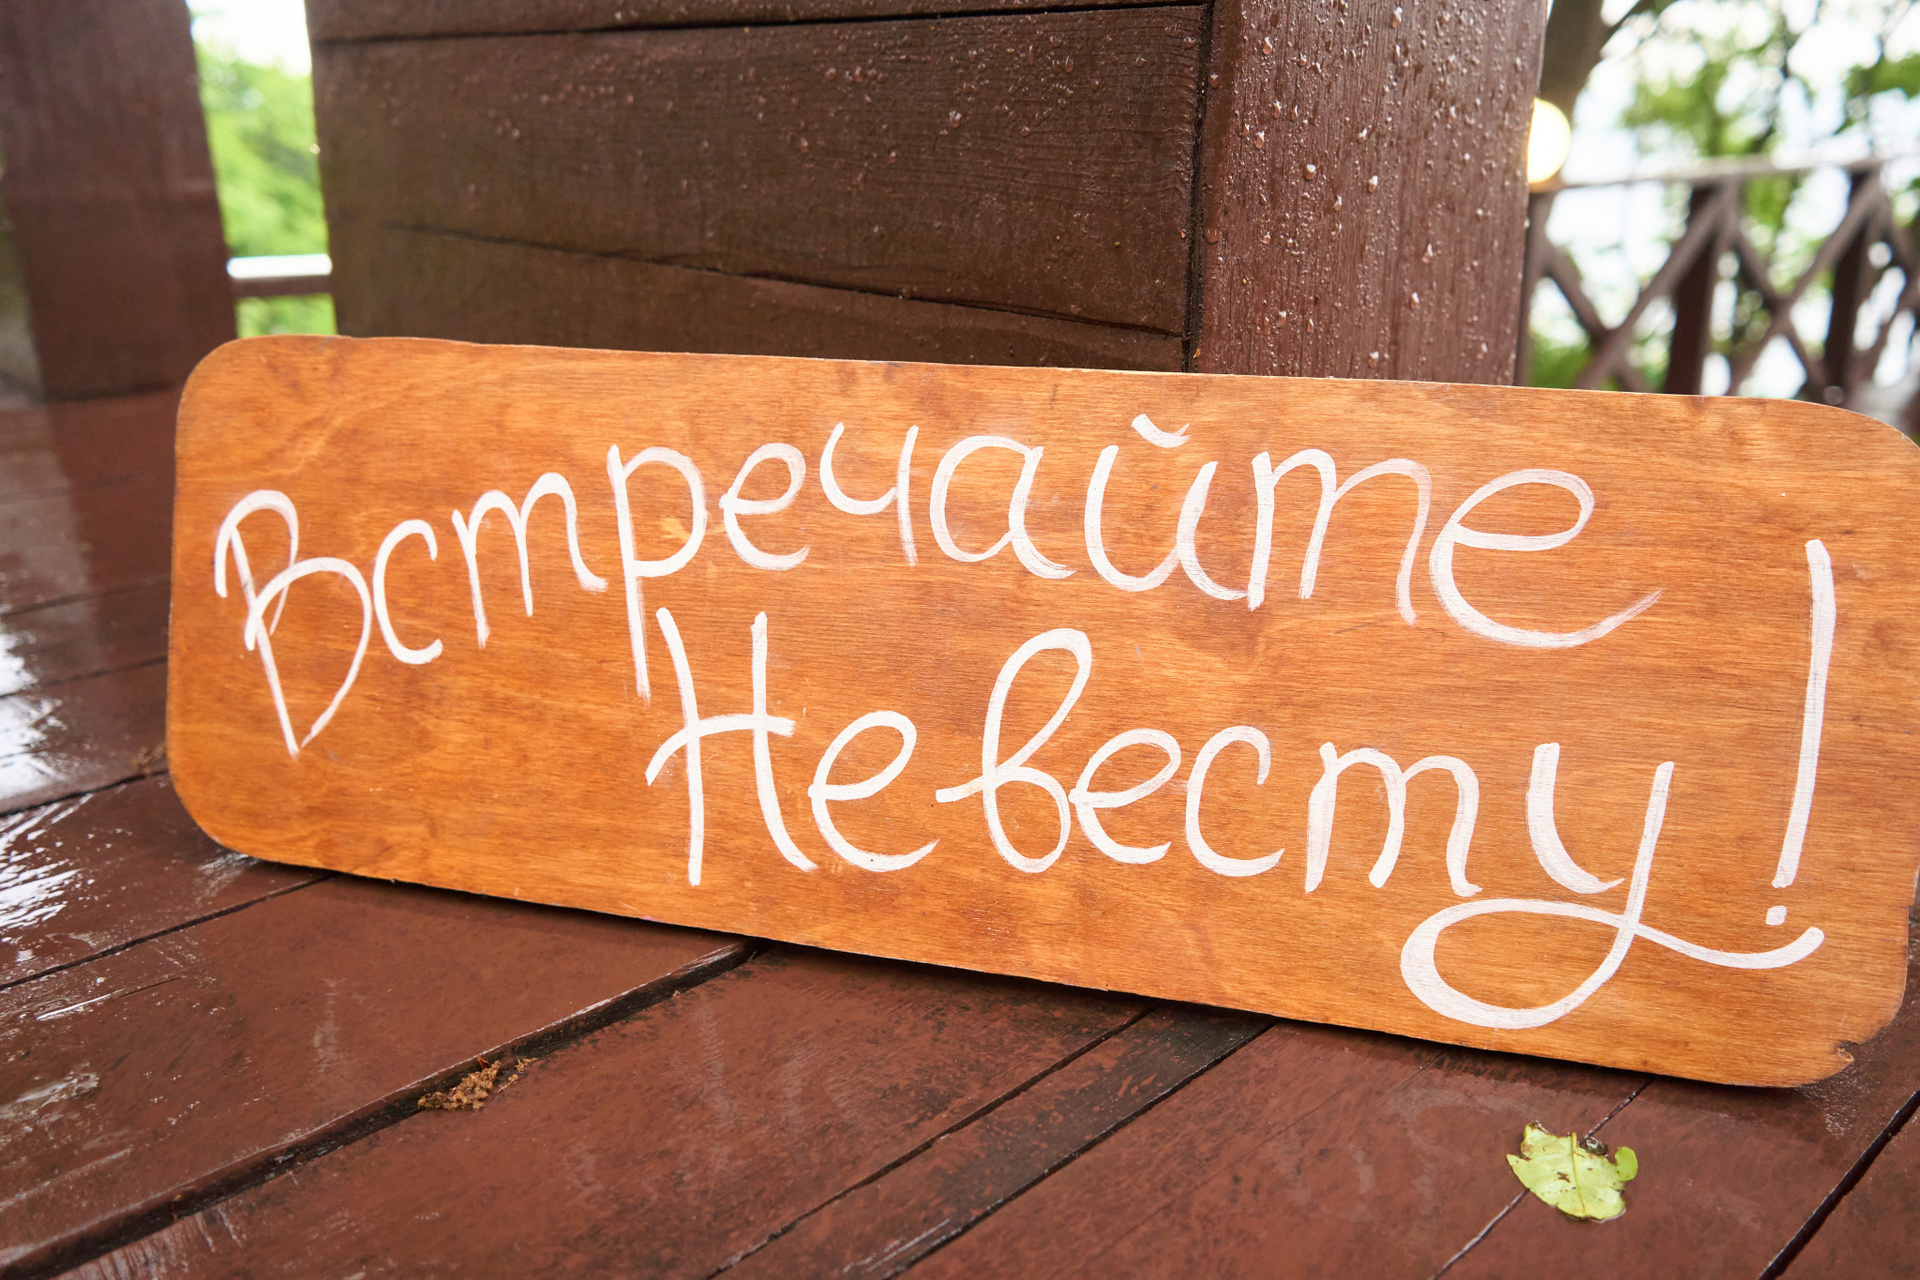 Встречайте
Невесту!